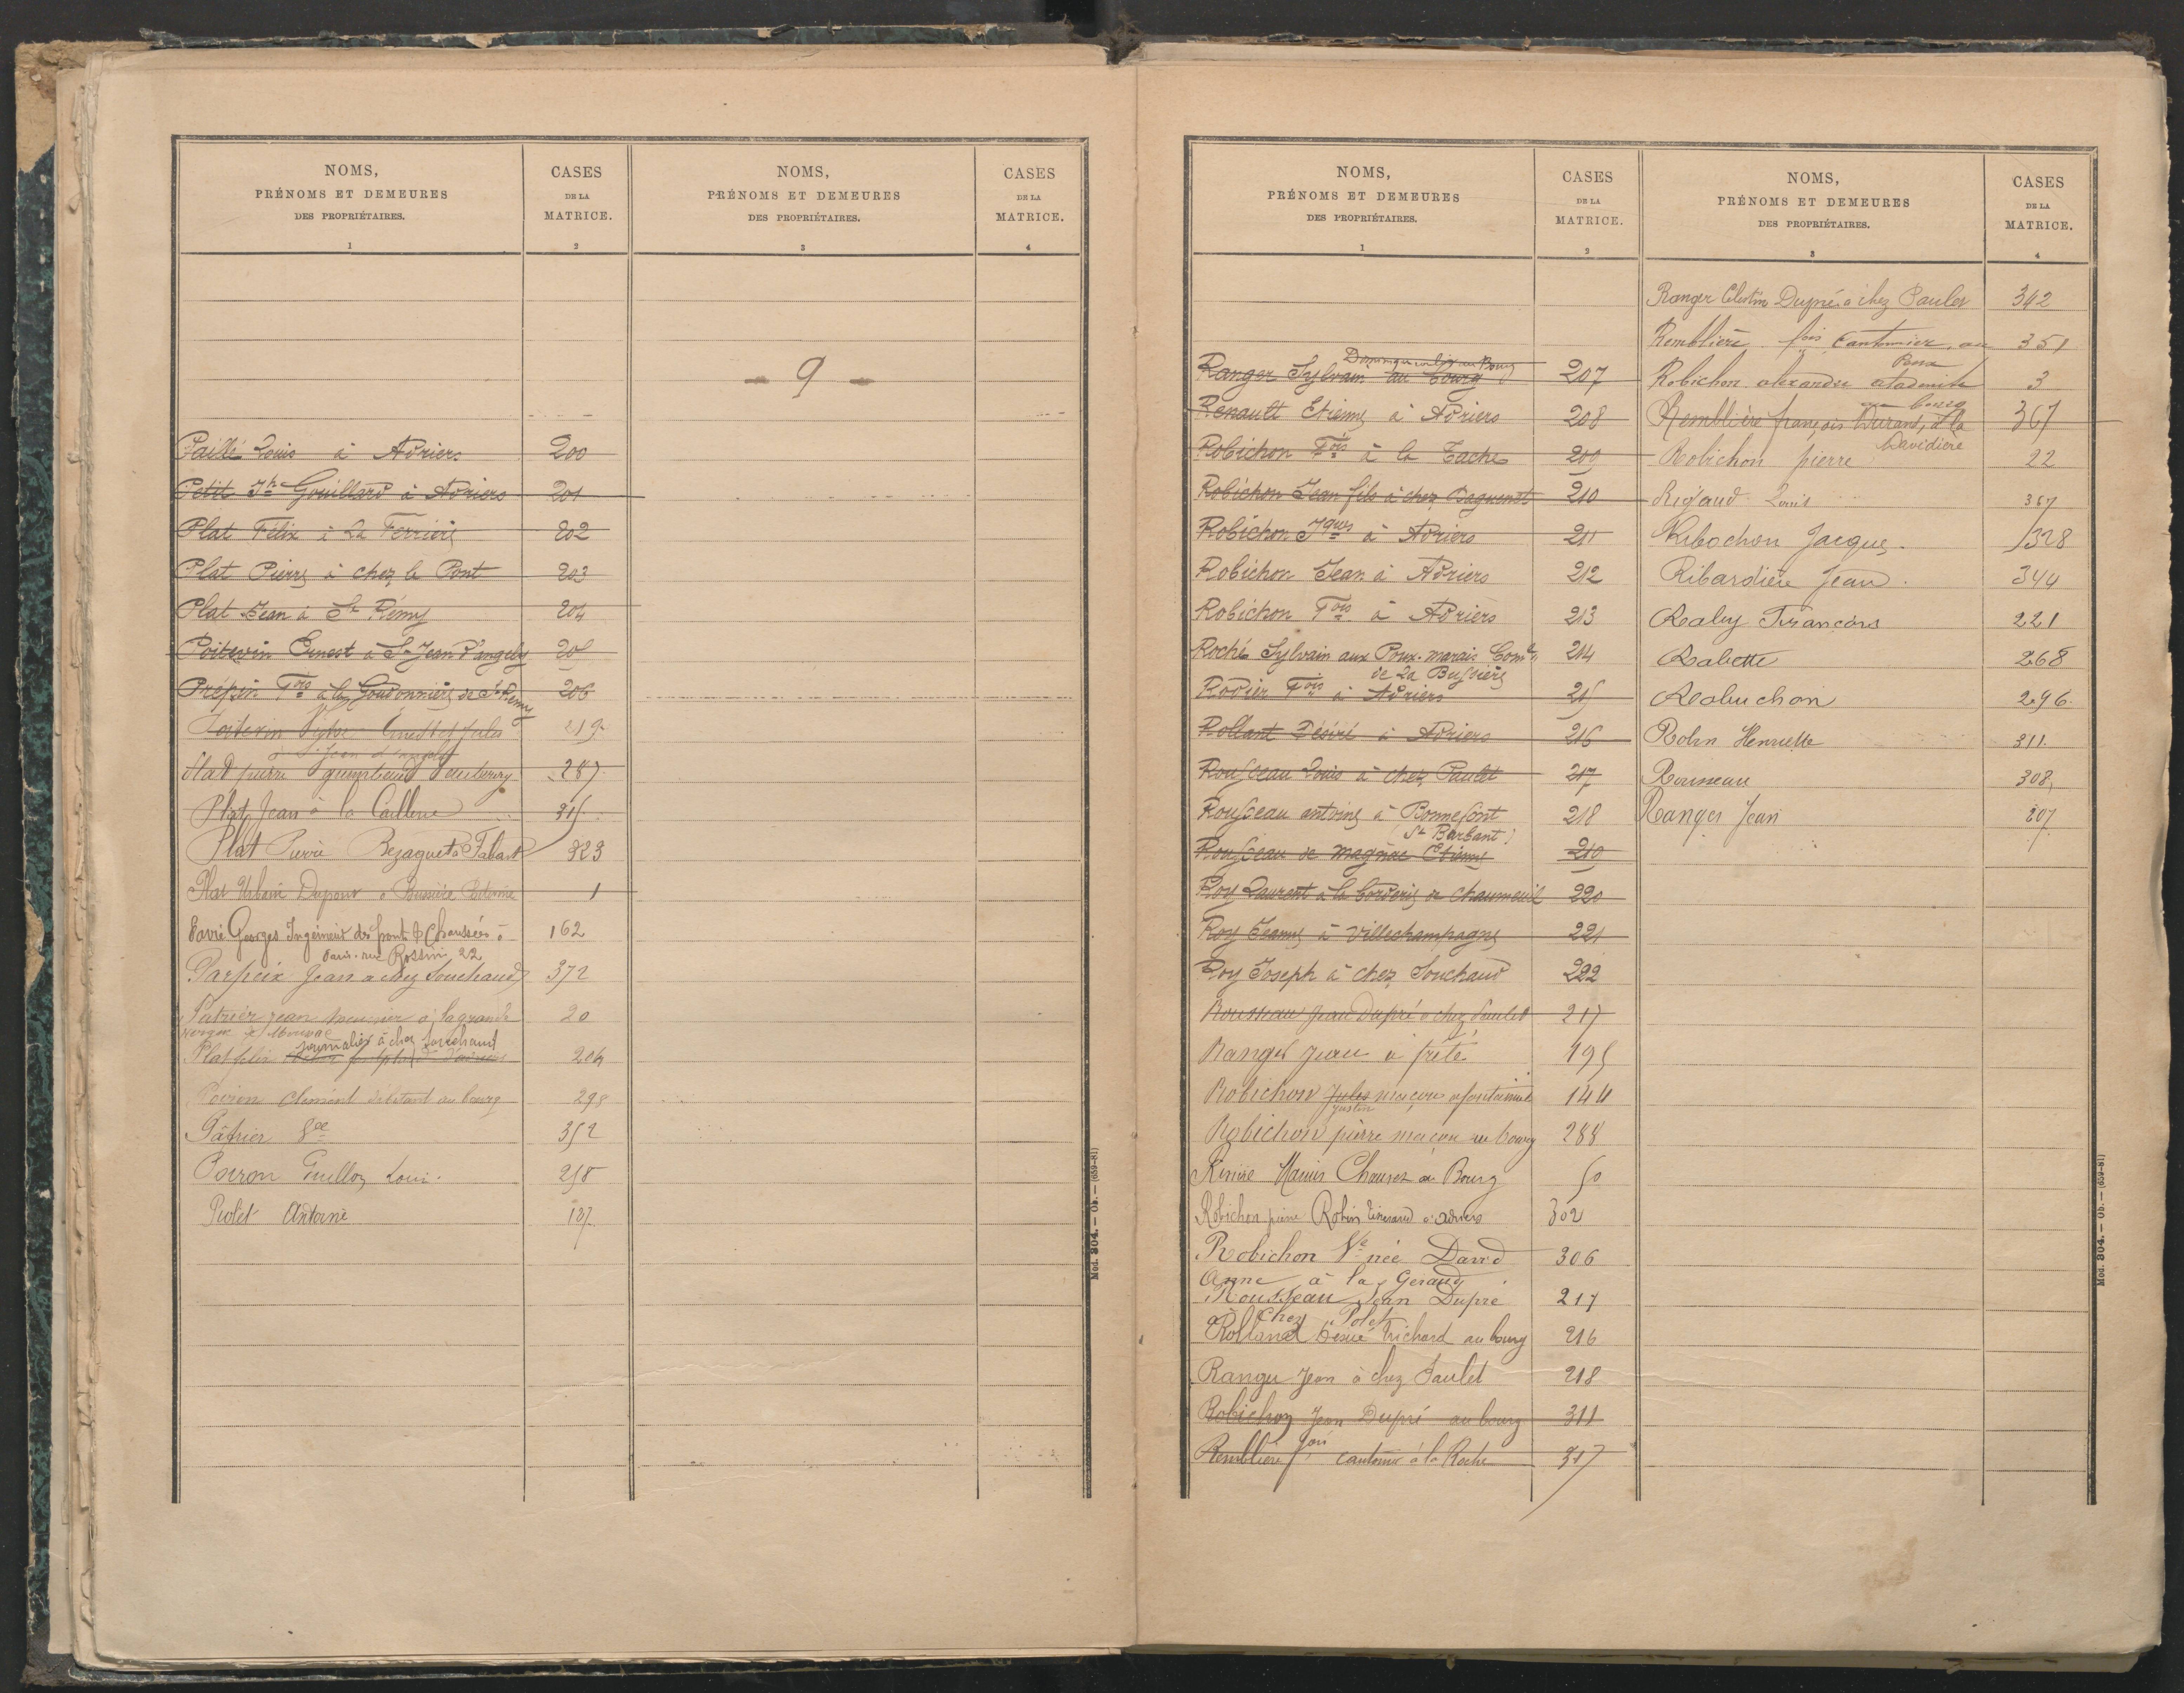 NOMS,
PRÉNOMS ET DEMEURES
DES PROPRIÉTAIRES.
1
CASES
DE LA
MATRICE.
2
Paillé Louis à Adriers 200
Petit Jh Gouillard à Adriers 201
Plat Félix à La Ferrière 202
Plat Pierre à chez le Pont 203
Plat Jean à St Rémy 204
Poitevin Ernest à St Jean d'angely 205
Prépin Fois à la Goudonnière de St Remy 206
Poitevin Ernest et Jules 219
à St Jean d'angely
Plat pierre 287
Plat Jean à la Caillerie 315
Plat Pierre Bezaguet à Tabart 323
Plat Urbain Dupont à Bussière Poitevine 1
Pavie Georges Ingénieur des ponts & Chaussées à 162
Paris. rue Rossini 22
Parpeix Jean à chez Souchaud 372
Patrier jean meunier à la grande 20
journalier à chez Souchaud
Plat félix 204
Poiron Clément débitant au bourg 298
Pâtrier Vve 352
Poiron Guillon Louis. 258
Piolet Antoine 137
NOMS,
PRÉNOMS ET DEMEURES
DES PROPRIÉTAIRES.
3
CASES
DE LA
MATRICE.
4
- 9 -
Mod. 304. — Ob. — (659-81)
NOMS,
PRÉNOMS ET DEMEURES
DES PROPRIÉTAIRES.
1
CASES
DE LA
MATRICE.
2
au Bourg
Ranger Sylvain au bourg 207
Renault Etienne à Adriers 208
Robichon Fois à la Tache 209
Robichon Jean fils à chez Daguenet 210
Robichon Jques à Adriers 211
Robichon Jean à Adriers 212
Robichon Fois à Adriers 213
Roché Sylvain aux Poux-marais Comne 214
de La Bussière
Rodier Fois à Adriers 215
Rollant Désiré à Adriers 216
Rousseau Louis à chez Paulet 217
Rousseau antoine à Bonnefont 218
(St Barbant)
Rousseau de magnac Etienne 219
Roy Laurent à la borderie de Chaumeuil 220
Roy Jeanne à Villechampagne 221
Roy Joseph à chez Souchaud 222
Rousseau Jean Dupré à chez Paulet 217
Ranger Jean à freté 195
Robichon Jules maçon à fontaimé 144
Justin
Robichon pierre maçon au bourg 288
Marius Chauvet au Bourg 50
Robichon pierre Robin à Adriers 302
Robichon Ve née David 306
Anne à la Geraud
Rousseau Jean Dupré 217
à Chez Polet
Rolland Désiré Trichard au bourg 216
Ranger Jean à chez Paulet 218
Robichon Jean Dupré au bourg 311
Remblière fois cantonnier à la Roche 317
NOMS,
PRÉNOMS ET DEMEURES
DES PROPRIÉTAIRES.
3
CASES
DE LA
MATRICE.
4
Ranger Célestin Dupré à chez Paulet 342
Remblière fois Cantonnier, au 351
Robichon alexandre 3
au bourg
Remblière françois Durand, à la 367
Davidière
Robichon pierre 22
Rigaud Louis 367
Ribochon Jacques. 328
Ribardière Jean. 344
Raby François 221
Rabette 268
Rabuchon 296
Robin Henriette 311
Rousseau 308
Ranger Jean 207
Mod. 304. — Ob. — (659-81)